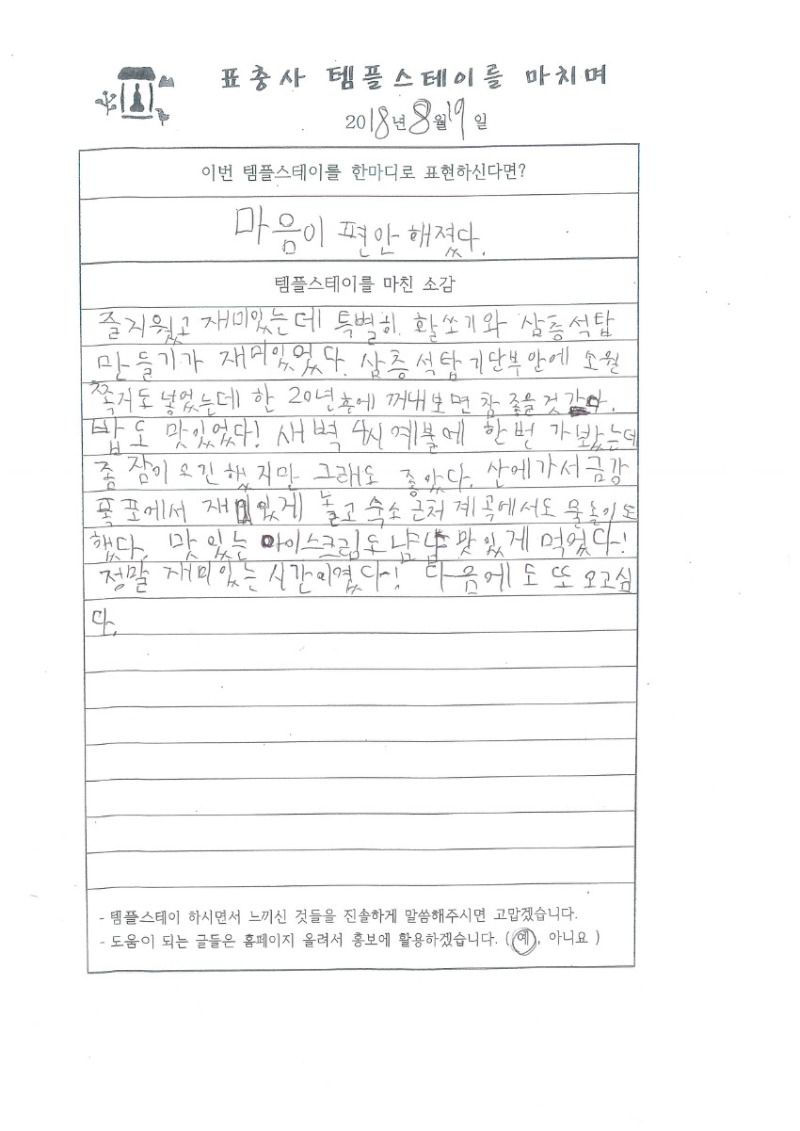 표충사 템플스테이를 마치며
2018년 8월 19일
이번 템플스테이를 한마디로 표현하신다면?
마음이 편안해졌다.
템플스테이를 마친 소감
즐거웠고 재미있는데 특별히. 활쏘기와 삼층석탑
만들기가 재미있었다. 삼층석탑 기단부안에 소원
쪽지도 넣었는데 한 20년후에 꺼내보면 참 좋을것 같다.
밥도 맛있었다! 새벽 4시 예불에 한번 가봤는데
좀 잠이 오긴 했지만 그래도 좋았다. 산에가서 금강
폭포에서 재미있게 놀고 숙소 근처 계곡에서도 물놀이도
했다. 맛있는 아이스크림도 냠냠 맛있게 먹었다!
정말 재미있는 시간이였다! 다음에도 또 오고싶
다.
- 템플스테이 하시면서 느끼신 것들을 진솔하게 말씀해주시면 고맙겠습니다.
- 도움이 되는 글들은 홈페이지 올려서 홍보에 활용하겠습니다. ( 예, 아니요 )